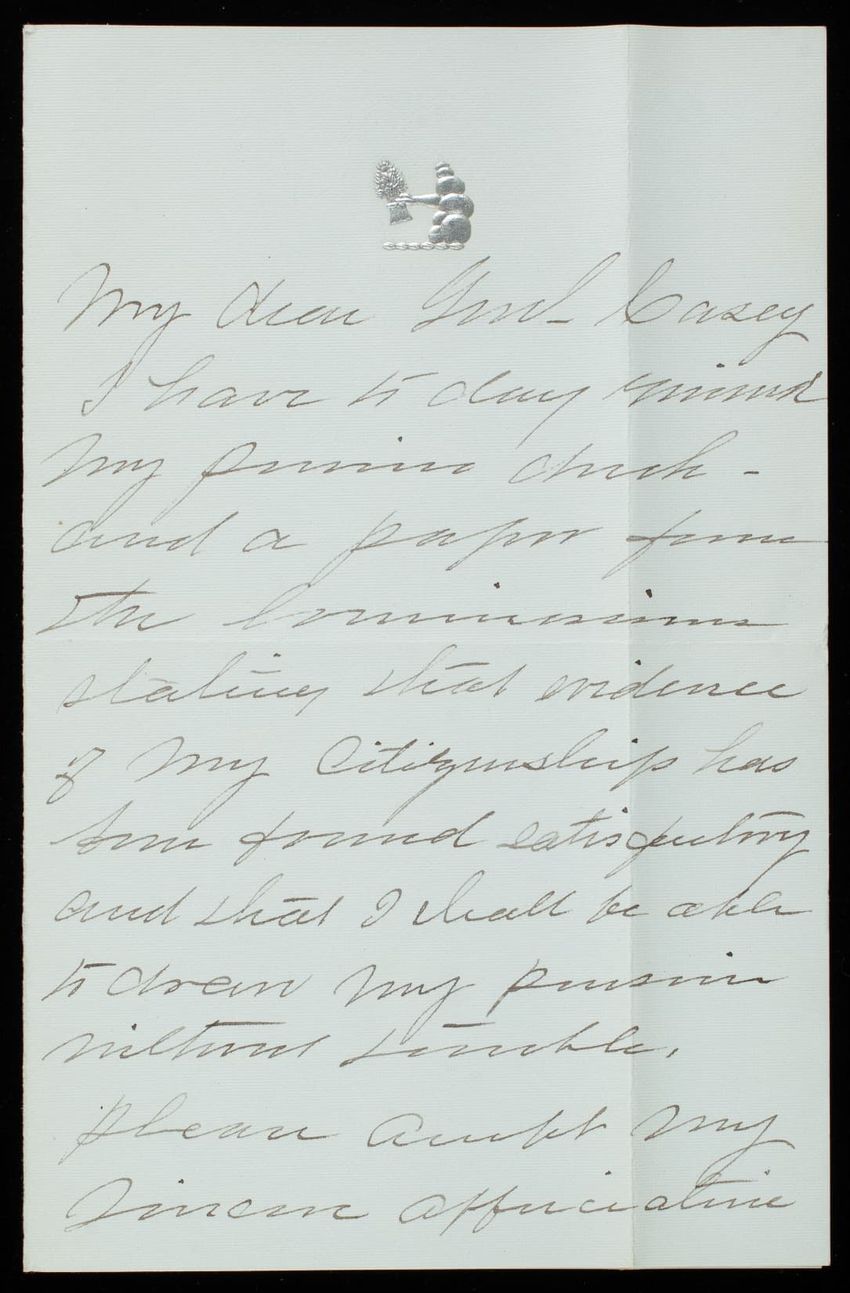 My dear Genl- Casey
I have to day received
my pension check -
and a paper from
the Commissioner
stating that evidence
of my Citizenship has
been found satisfactory
and that I shall be able
to draw my pension
without trouble.
please accept my
sincere appreciation